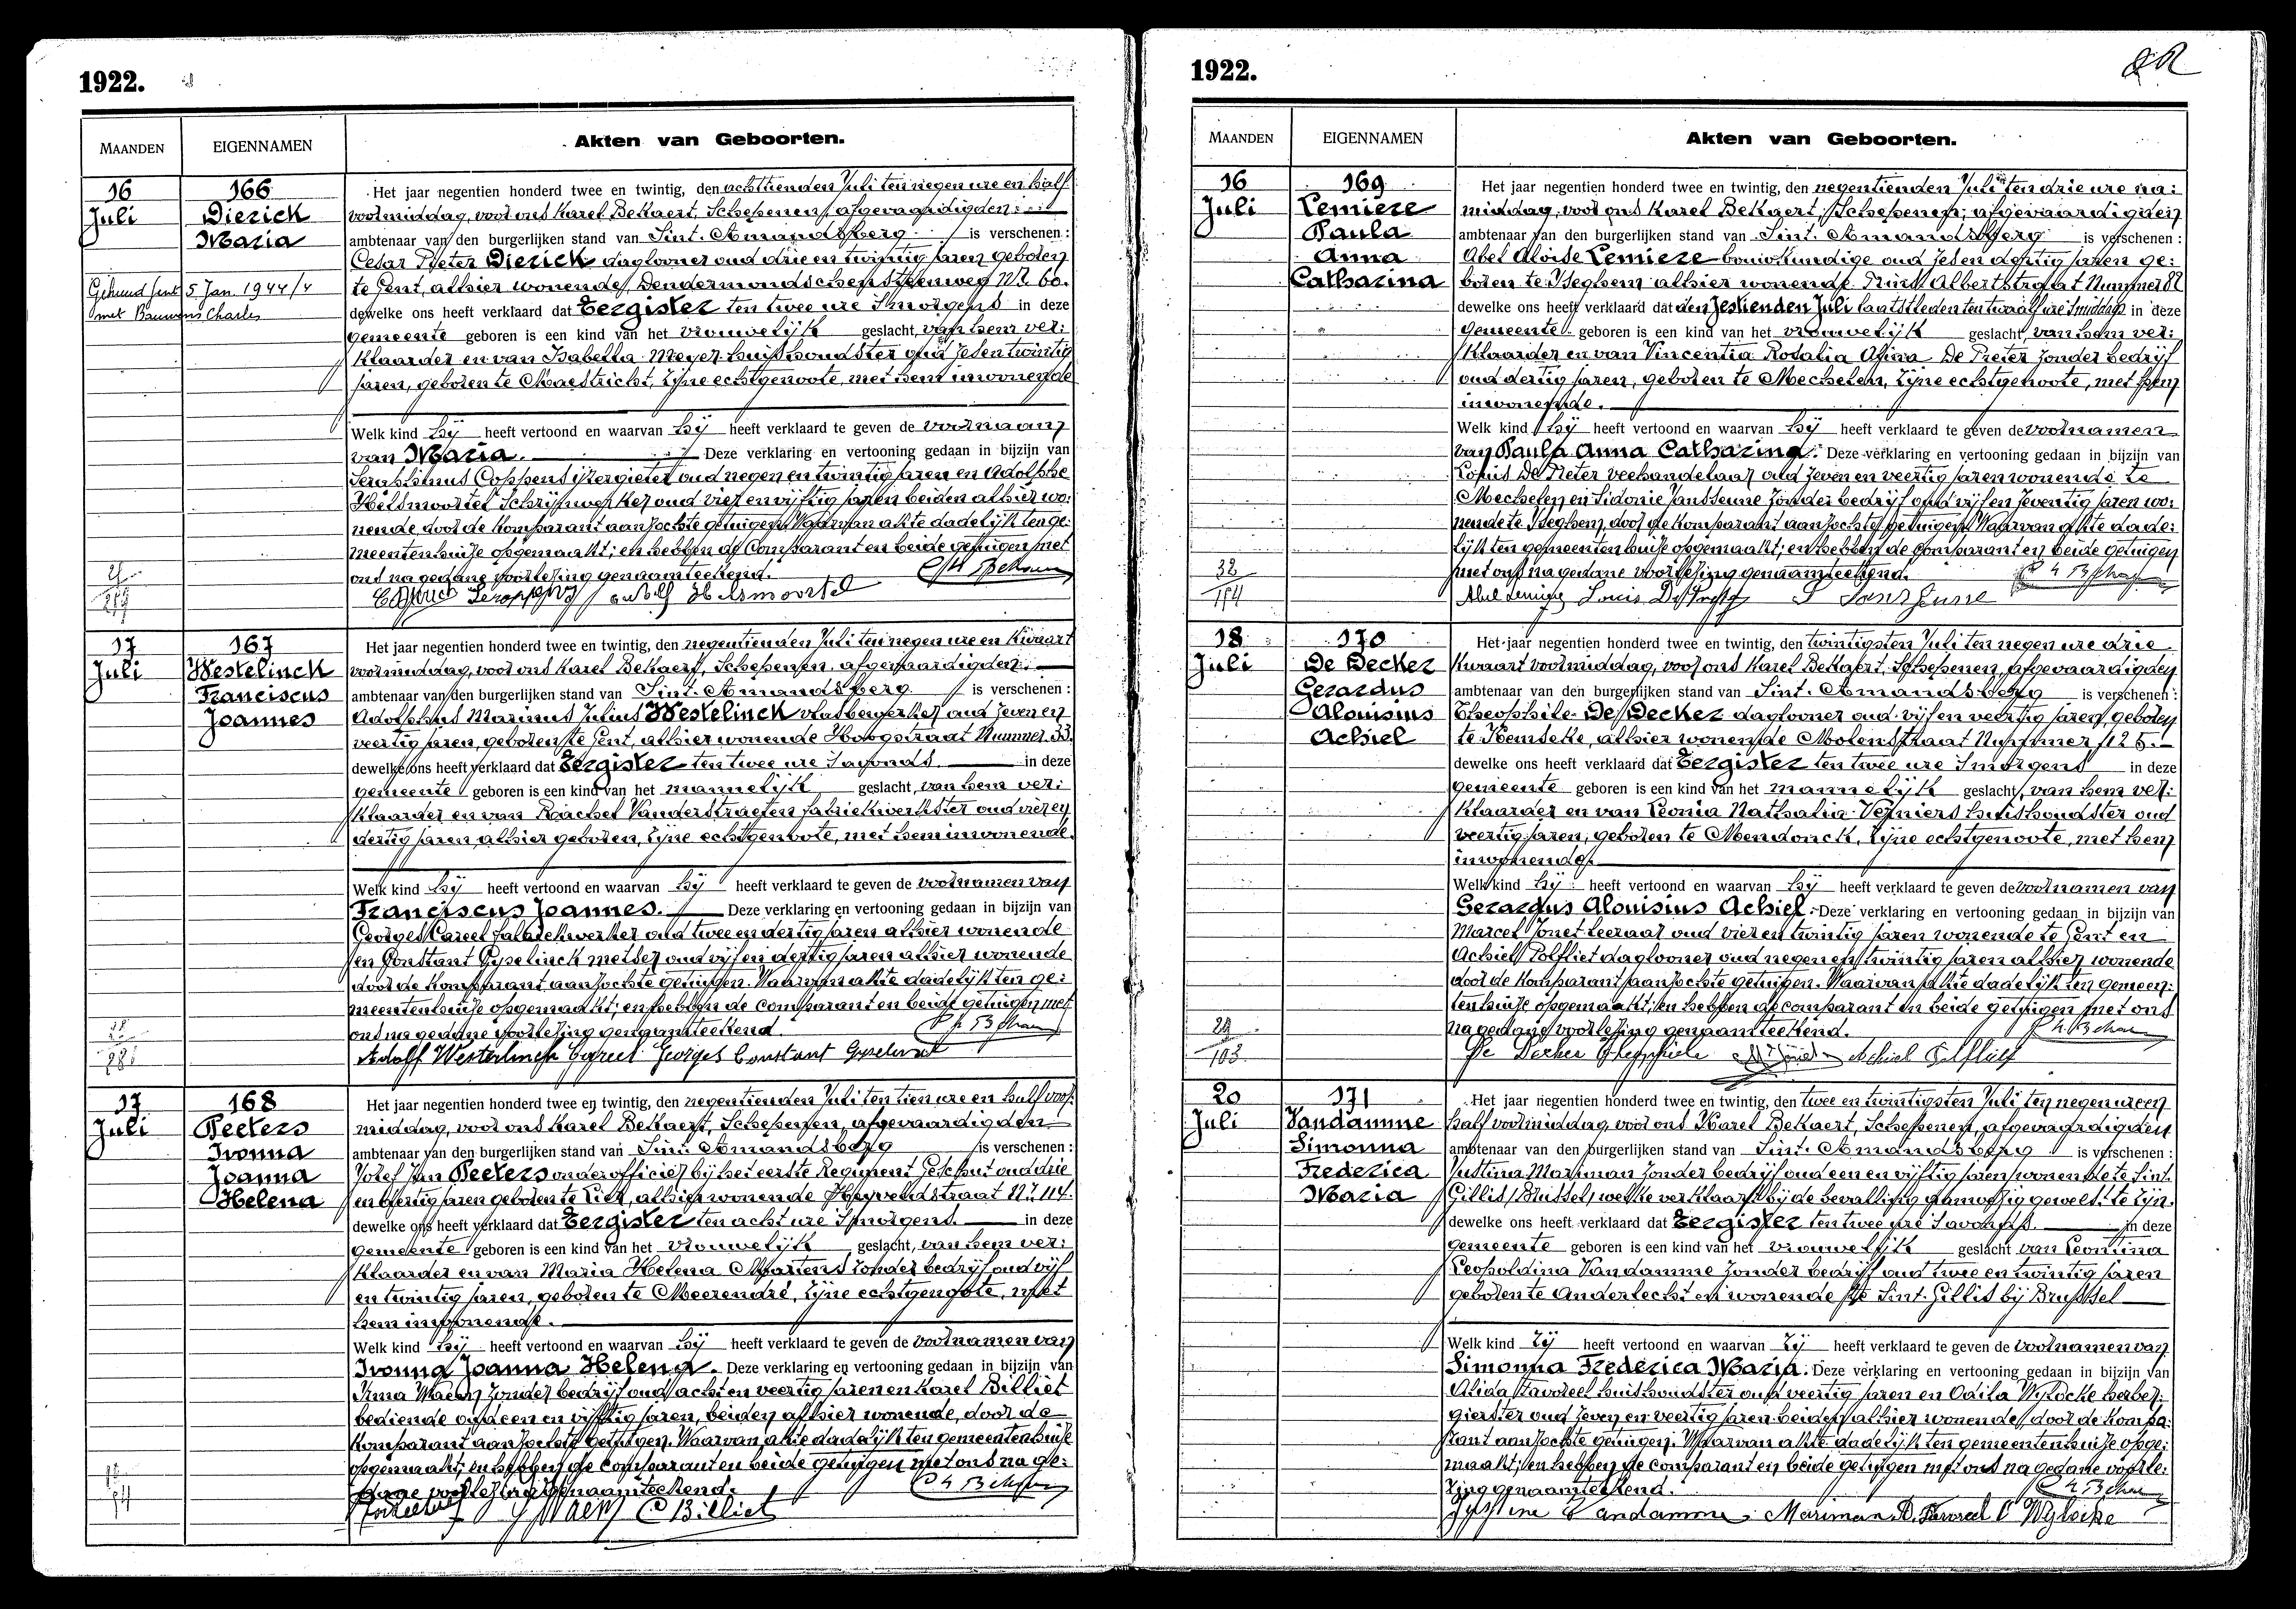 1922.
MAANDEN
EIGENNAMEN
Akten van Geboorten.
16
Juli
166
Dierick
Maria
Gehuwd Gent 5 Jan. 1944/4
met Bauwens Charles
Het jaar negentien honderd twee en twintig, den achttienden Juli ten negen ure en half
voormiddag, voor ons Karel BeKaert, Schepenen, afgevaardigden
ambtenaar van den burgerlijken stand van Sint. Amandsberg is verschenen :
Cesar Pieter Dierick daglooner oud drie en twintig jaren geboren
te Gent, alhier wonende, Dendermondschensteenweg Nr. 60.
dewelke ons heeft verklaard dat Eergister ten twee ure Smorgens in deze
gemeente geboren is een kind van het vrouwelijk geslacht, van hem ver:
klaarder en van Isabella Meyer huishoudster oud zesentwintig
jaren, geboren te Maestricht, zijne echtgenoote, met hem inwonende
Welk kind hij heeft vertoond en waarvan hij heeft verklaard te geven de voornaam
van Maria. Deze verklaring en vertooning gedaan in bijzijn van
Seraphinus Coppens ijzergieter oud negen en twintig jaren en Adolphe
Helsmoortel Schrijnwerker oud vier en vijftig jaren beiden alhier wo:
nende door de Komparant aanzochte getuigen. Waarvan akte dadelijk ten ge:
meentenhuize opgemaakt; en hebben de Comparant en beide getuigen met
ons na gedane voorlezing genaamteekend.
17
Juli
167
Westelinck
Franciscus
Joannes
Het jaar negentien honderd twee en twintig, den negentienden Juli ten negen ure en Kwaart
voormiddag, voor ons Karel BeKaert, Schepenen, afgevaardigden
ambtenaar van den burgerlijken stand van Sint. Amandsberg is verschenen :
Adolphus Marinus Julius Westelinck vlasbewerker oud zeven en
veertig jaren, geboren te Gent, alhier wonende Hoogstraat Nummer 33.
dewelke ons heeft verklaard dat Eergister ten twee ure Savonds in deze
gemeente geboren is een kind van het mannelijk geslacht, van hem ver:
klaarder en van Rachel Vanderstraeten fabriekwerkster oud vier en
dertig jaren alhier geboren, zijne echtgenoote, met hem inwonende.
Welk kind hij heeft vertoond en waarvan hij heeft verklaard te geven de voornamen van
Franciscus Joannes. Deze verklaring en vertooning gedaan in bijzijn van
Georges Careel fabriekwerker oud twee en dertig jaren alhier wonende
en Constant Gyselinck metser oud vijf en dertig jaren alhier wonende
door de Komparant aanzochte getuigen. Waarvan akte dadelijk ten ge:
meentenhuize opgemaakt; en hebben de comparant en beide getuigen met
ons na gedane voorlezing genaamteekend.
17
Juli
168
Peeters
Ivonna
Joanna
Helena
Het jaar negentien honderd twee en twintig, den negentienden Juli ten tien ure en half voor
middag, voor ons Karel BeKaert, Schepenen, afgevaardigden
ambtenaar van den burgerlijken stand van Sint Amandsberg is verschenen :
Jozef Jan Peeters onderofficier bij het eerste Regiment Geschut oud drie
en dertig jaren geboren te Lier, alhier wonende Heyveldstraat Nr. 114.
dewelke ons heeft verklaard dat Eergister ten acht ure Smorgens. in deze
gemeente geboren is een kind van het vrouwelijk geslacht, van hem ver:
klaarder en van Maria Helena Martens zonder bedrijf oud vijf
en twintig jaren, geboren te Meerendré, zijne echtgenoote, met
hem inwonende.
Welk kind hij heeft vertoond en waarvan hij heeft verklaard te geven de voornamen van
Ivonna Joanna Helena. Deze verklaring en vertooning gedaan in bijzijn van
Irma Waem zonder bedrijf oud acht en veertig jaren en Karel Billiet
bediende oud een en vijftig jaren, beiden alhier wonende, door de
Komparant aanzochte getuigen. Waarvan akte dadelijk ten gemeentenhuize
opgemaakt; en hebben de comparant en beide getuigen met ons na ge:
dane voorlezing genaamteekend.
C Billiet
1922.
MAANDEN
EIGENNAMEN
Akten van Geboorten.
16
Juli
169
Lemiere
Paula
Anna
Catharina
32
194
Het jaar negentien honderd twee en twintig, den negentienden Juli ten drie ure na:
middag, voor ons Karel BeKaert, Schepenen, afgevaardigden
ambtenaar van den burgerlijken stand van Sint. Amandsberg is verschenen :
Abel Aloise Lemiere bouwkundige oud zesen dertig jaren ge:
boren te Iseghem alhier wonende Prins Albertstraat Nummer 82
dewelke ons heeft verklaard dat den zestienden Juli laatstleden ten twaalf ure Smiddags in deze
gemeente geboren is een kind van het vrouwelijk geslacht, van hem ver:
klaarder en van Vincentia Rosalia Alina De Preter zonder bedrijf
oud dertig jaren, geboren te Mechelen, zijne echtgenoote, met hem
inwonende.
Welk kind hij heeft vertoond en waarvan hij heeft verklaard te geven de voornamen
van Paula Anna Catharina. Deze verklaring en vertooning gedaan in bijzijn van
Louis De Preter veehandelaar oud zeven en veertig jaren wonende te
Mechelen en Sidonie Janssenne zonder bedrijf oud vijf en zeventig jaren wo:
nende te Iseghem door de Komparant aanzochte getuigen. Waarvan akte dade:
lijk ten gemeentenhuize opgemaakt; en hebben de comparant en beide getuigen
met ons na gedane voorlezing genaamteekend.
18
Juli
170
De Decker
Gerardus
Alouisius
Achiel
103
Het jaar negentien honderd twee en twintig, den twintigsten Juli ten negen ure drie
Kwaart voormiddag, voor ons Karel BeKaert, Schepenen, afgevaardigden
ambtenaar van den burgerlijken stand van Sint. Amandsberg is verschenen :
Theophile De Decker daglooner oud vijf en veertig jaren, geboren
te Kemseke, alhier wonende Molenstraat Nummer 125.
dewelke ons heeft verklaard dat Eergister ten twee ure Smorgens in deze
gemeente geboren is een kind van het mannelijk geslacht, van hem ver:
klaarder en van Leonia Nathalia Verniers huishoudster oud
veertig jaren, geboren te Mendonck, zijne echtgenoote, met hem
inwonende.
Welk kind hij heeft vertoond en waarvan hij heeft verklaard te geven de voornamen van
Gerardus Alouisius Achiel. Deze verklaring en vertooning gedaan in bijzijn van
Marcel Jonet leeraar oud vier en twintig jaren wonende te Gent en
Achiel Polfliet daglooner oud negen en twintig jaren alhier wonende
door de Komparant aanzochte getuigen. Waarvan akte dadelijk ten gemeen:
tenhuize opgemaakt; en hebben de comparant en beide getuigen met ons
na gedane voorlezing genaamteekend.
20
Juli
171
Vandamme
Simonna
Frederica
Maria
Het jaar negentien honderd twee en twintig, den twee en twintigsten Juli ten negen ure en
half voormiddag, voor ons Karel BeKaert, Schepenen, afgevaardigden
ambtenaar van den burgerlijken stand van Sint. Amandsberg is verschenen :
Justina Mariman zonder bedrijf oud een en vijftig jaren wonende te Sint.
Gillis, Brussel, welke verklaart bij de bevalling aanwezig geweest te zijn.
dewelke ons heeft verklaard dat Eergister ten twee ure Savonds. in deze
gemeente geboren is een kind van het vrouwelijk geslacht van Leontina
Leopoldina Vandamme zonder bedrijf oud twee en twintig jaren
geboren te Anderlecht en wonende te Sint. Gillis bij Brussel
Welk kind zij heeft vertoond en waarvan zij heeft verklaard te geven de voornamen van
Simonna Frederica Maria. Deze verklaring en vertooning gedaan in bijzijn van
Alida Tavoreel huishoudster oud veertig jaren en Odila Wylocke herber:
gierster oud zeven en veertig jaren beiden alhier wonende door de Kompa:
rant aanzochte getuigen. Waarvan akte dadelijk ten gemeentenhuize opge:
maakt; en hebben de comparant en beide getuigen met ons na gedane voorle:
zing genaamteekend.